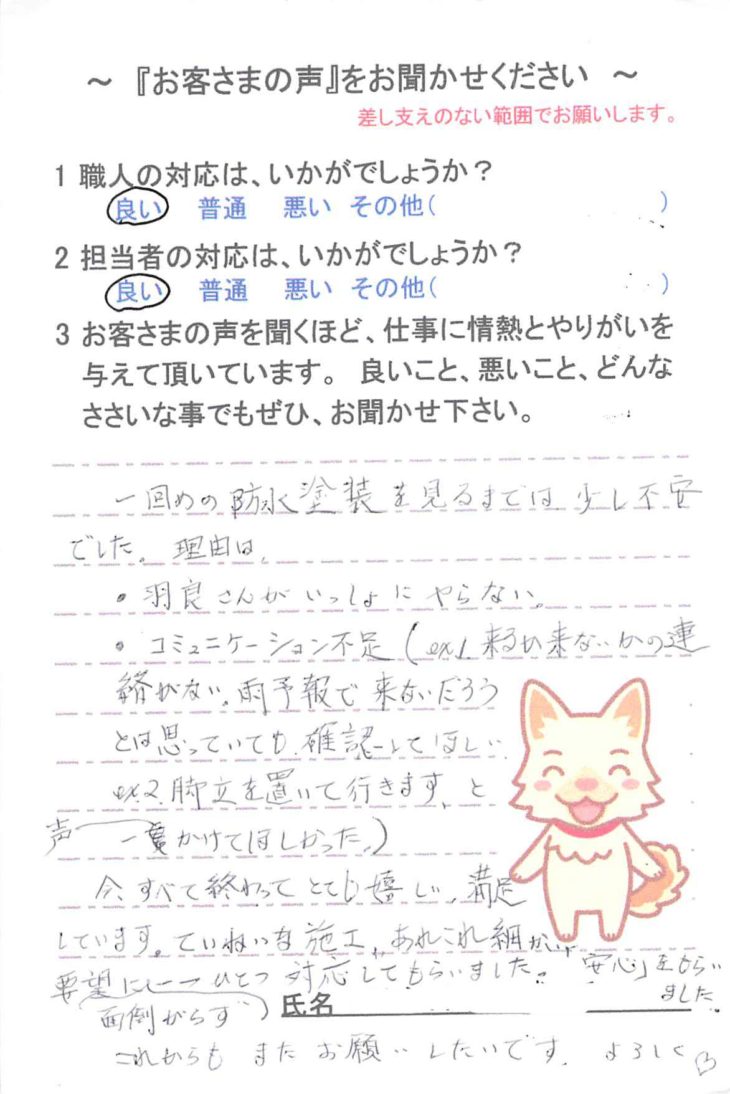 ~ 『お客さまの声』をお聞かせください ~
差し支えのない範囲でお願いします。
1 職人の対応は、いかがでしょうか？
良い 普通 悪い その他( )
2 担当者の対応は、いかがでしょうか？
良い 普通 悪い その他( )
3 お客さまの声を聞くほど、仕事に情熱とやりがいを
与えて頂いています。 良いこと、悪いこと、どんな
ささいな事でもぜひ、お聞かせ下さい。
一回めの防水塗装を見るまでは少し不安
でした。理由は、
・羽良さんがいっしょにやらない。
・コミュニケーション不足(ex1 来るか来ないかの連
絡がない。雨予報で来ないだろう
とは思っていても確認してほしい
ex.2 脚立を置いて行きます、と
声 一言かけてほしかった。)
今、すべて終わってとても嬉しい、満足
しています。ていねいな施工、あれこれ細かい
要望に一つひとつ対応してもらいました。「安心」をもらい
ました
面倒がらず
氏名
これからもまたお願いしたいです。よろしく